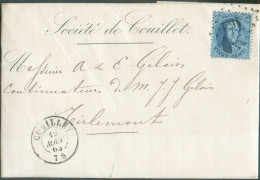 Société de Couillet.
Messieurs A & E Gelains
Continuateurs de M. J. J. Gelains
Tirlemont
COUILLET
12
AOUT
65
7 S